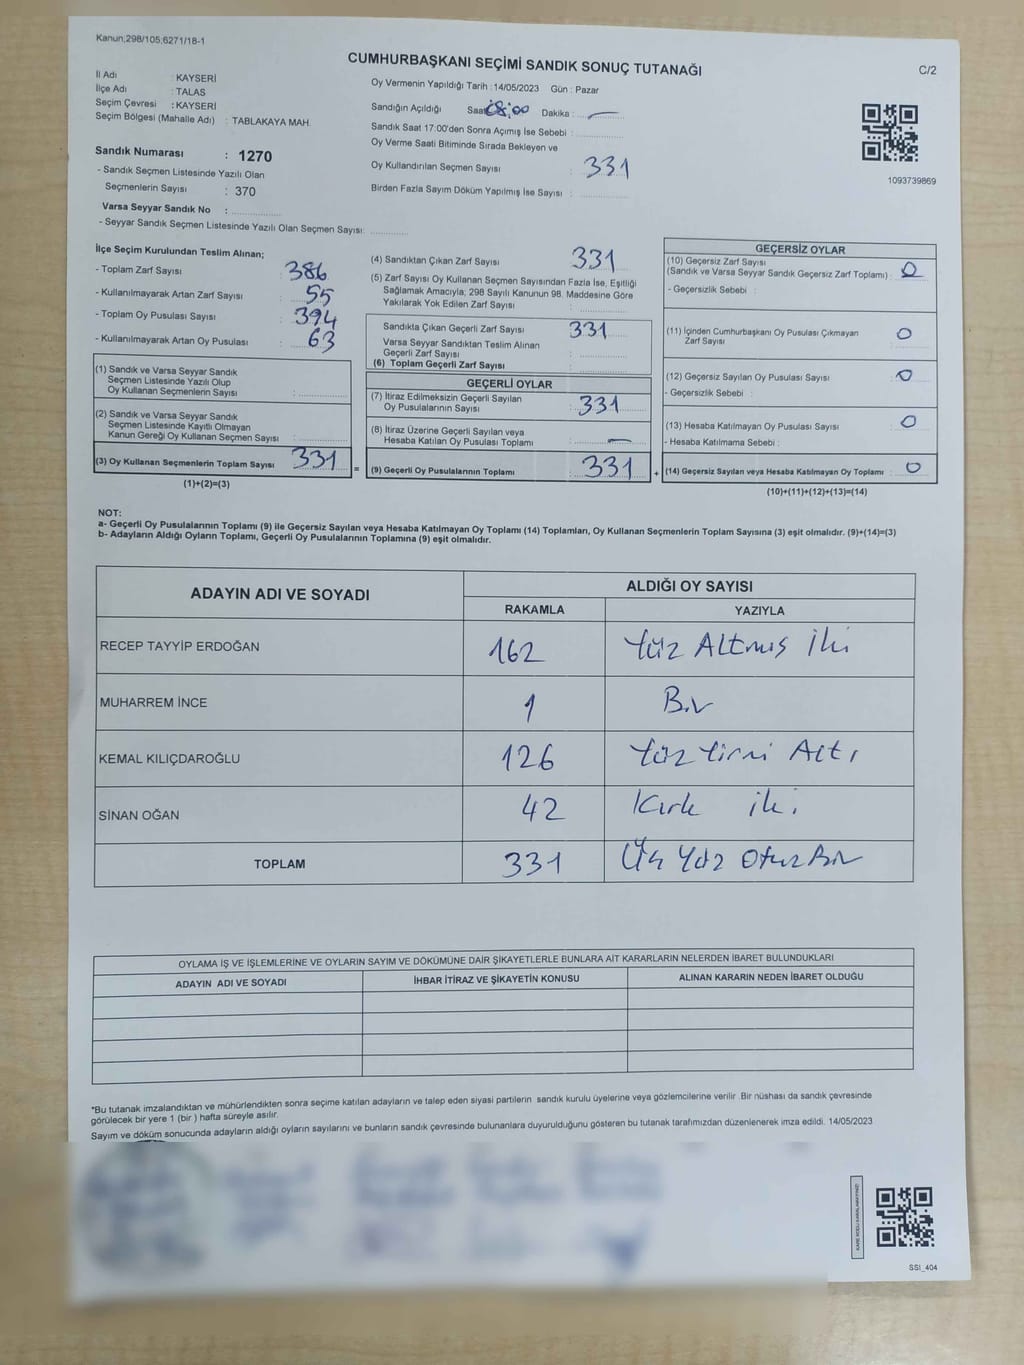 Kanun;298/105;6271/18-1
CUMHURBAŞKANI SEÇİMİ SANDIK SONUÇ TUTANAĞI
C/2
İl Adı : KAYSERİ
İlçe Adı : TALAS
Seçim Çevresi : KAYSERİ
Seçim Bölgesi (Mahalle Adı) : TABLAKAYA MAH.
Sandık Numarası : 1270
- Sandık Seçmen Listesinde Yazılı Olan
Seçmenlerin Sayısı : 370
Varsa Seyyar Sandık No :
- Seyyar Sandık Seçmen Listesinde Yazılı Olan Seçmen Sayısı:
Oy Vermenin Yapıldığı Tarih : 14/05/2023 Gün : Pazar
Sandığın Açıldığı Saat 18:00 Dakika : —
Sandık Saat 17:00'den Sonra Açımış İse Sebebi :
Oy Verme Saati Bitiminde Sırada Bekleyen ve
Oy Kullandırılan Seçmen Sayısı : 331
Birden Fazla Sayım Döküm Yapılmış İse Sayısı :
1093739869
İlçe Seçim Kurulundan Teslim Alınan;
- Toplam Zarf Sayısı : 386
- Kullanılmayarak Artan Zarf Sayısı : 55
- Toplam Oy Pusulası Sayısı : 394
- Kullanılmayarak Artan Oy Pusulası : 63
(1) Sandık ve Varsa Seyyar Sandık
Seçmen Listesinde Yazılı Olup
Oy Kullanan Seçmenlerin Sayısı :
(2) Sandık ve Varsa Seyyar Sandık
Seçmen Listesinde Kayıtlı Olmayan
Kanun Gereği Oy Kullanan Seçmen Sayısı :
(3) Oy Kullanan Seçmenlerin Toplam Sayısı 331
(1)+(2)=(3)
(4) Sandıktan Çıkan Zarf Sayısı 331
(5) Zarf Sayısı Oy Kullanan Seçmen Sayısından Fazla İse, Eşitliği
Sağlamak Amacıyla; 298 Sayılı Kanunun 98. Maddesine Göre
Yakılarak Yok Edilen Zarf Sayısı :
Sandıkla Çıkan Geçerli Zarf Sayısı 331
Varsa Seyyar Sandıktan Teslim Alınan
Geçerli Zarf Sayısı :
(6) Toplam Geçerli Zarf Sayısı :
=
GEÇERLİ OYLAR
(7) İtiraz Edilmeksizin Geçerli Sayılan
Oy Pusulalarının Sayısı : 331
(8) İtiraz Üzerine Geçerli Sayılan veya
Hesaba Katılan Oy Pusulası Toplamı : —
(9) Geçerli Oy Pusulalarının Toplamı : 331
+
GEÇERSİZ OYLAR
(10) Geçersiz Zarf Sayısı
(Sandık ve Varsa Seyyar Sandık Geçersiz Zarf Toplamı) : 0
- Geçersizlik Sebebi :
(11) İçinden Cumhurbaşkanı Oy Pusulası Çıkmayan
Zarf Sayısı : 0
(12) Geçersiz Sayılan Oy Pusulası Sayısı : 0
- Geçersizlik Sebebi :
(13) Hesaba Katılmayan Oy Pusulası Sayısı : 0
- Hesaba Katılmama Sebebi :
(14) Geçersiz Sayılan veya Hesaba Katılmayan Oy Toplamı : 0
(10)+(11)+(12)+(13)=(14)
NOT:
a- Geçerli Oy Pusulalarının Toplamı (9) ile Geçersiz Sayılan veya Hesaba Katılmayan Oy Toplamı (14) Toplamları, Oy Kullanan Seçmenlerin Toplam Sayısına (3) eşit olmalıdır. (9)+(14)=(3)
b- Adayların Aldığı Oyların Toplamı, Geçerli Oy Pusulalarının Toplamına (9) eşit olmalıdır.
ADAYIN ADI VE SOYADI ALDIĞI OY SAYISI
RAKAMLA YAZIYLA
RECEP TAYYİP ERDOĞAN 162 Yüz Altmış İki
MUHARREM İNCE 1 Bir
KEMAL KILIÇDAROĞLU 126 Yüz Yirmi Altı
SİNAN OĞAN 42 Kırk iki
TOPLAM 331 Üç Yüz Otuz Bir
OYLAMA İŞ VE İŞLEMLERİNE VE OYLARIN SAYIM VE DÖKÜMÜNE DAİR ŞİKAYETLERLE BUNLARA AİT KARARLARIN NELERDEN İBARET BULUNDUKLARI
ADAYIN ADI VE SOYADI İHBAR İTİRAZ VE ŞİKAYETİN KONUSU ALINAN KARARIN NEDEN İBARET OLDUĞU
*Bu tutanak imzalandıktan ve mühürlendikten sonra seçime katılan adayların ve talep eden siyasi partilerin sandık kurulu üyelerine veya gözlemcilerine verilir. Bir nüshası da sandık çevresinde
görülecek bir yere 1 (bir ) hafta süreyle asılır.
Sayım ve döküm sonucunda adayların aldığı oyların sayılarını ve bunların sandık çevresinde bulunanlara duyurulduğunu gösteren bu tutanak tarafımızdan düzenlenerek imza edildi. 14/05/2023
SSI_404